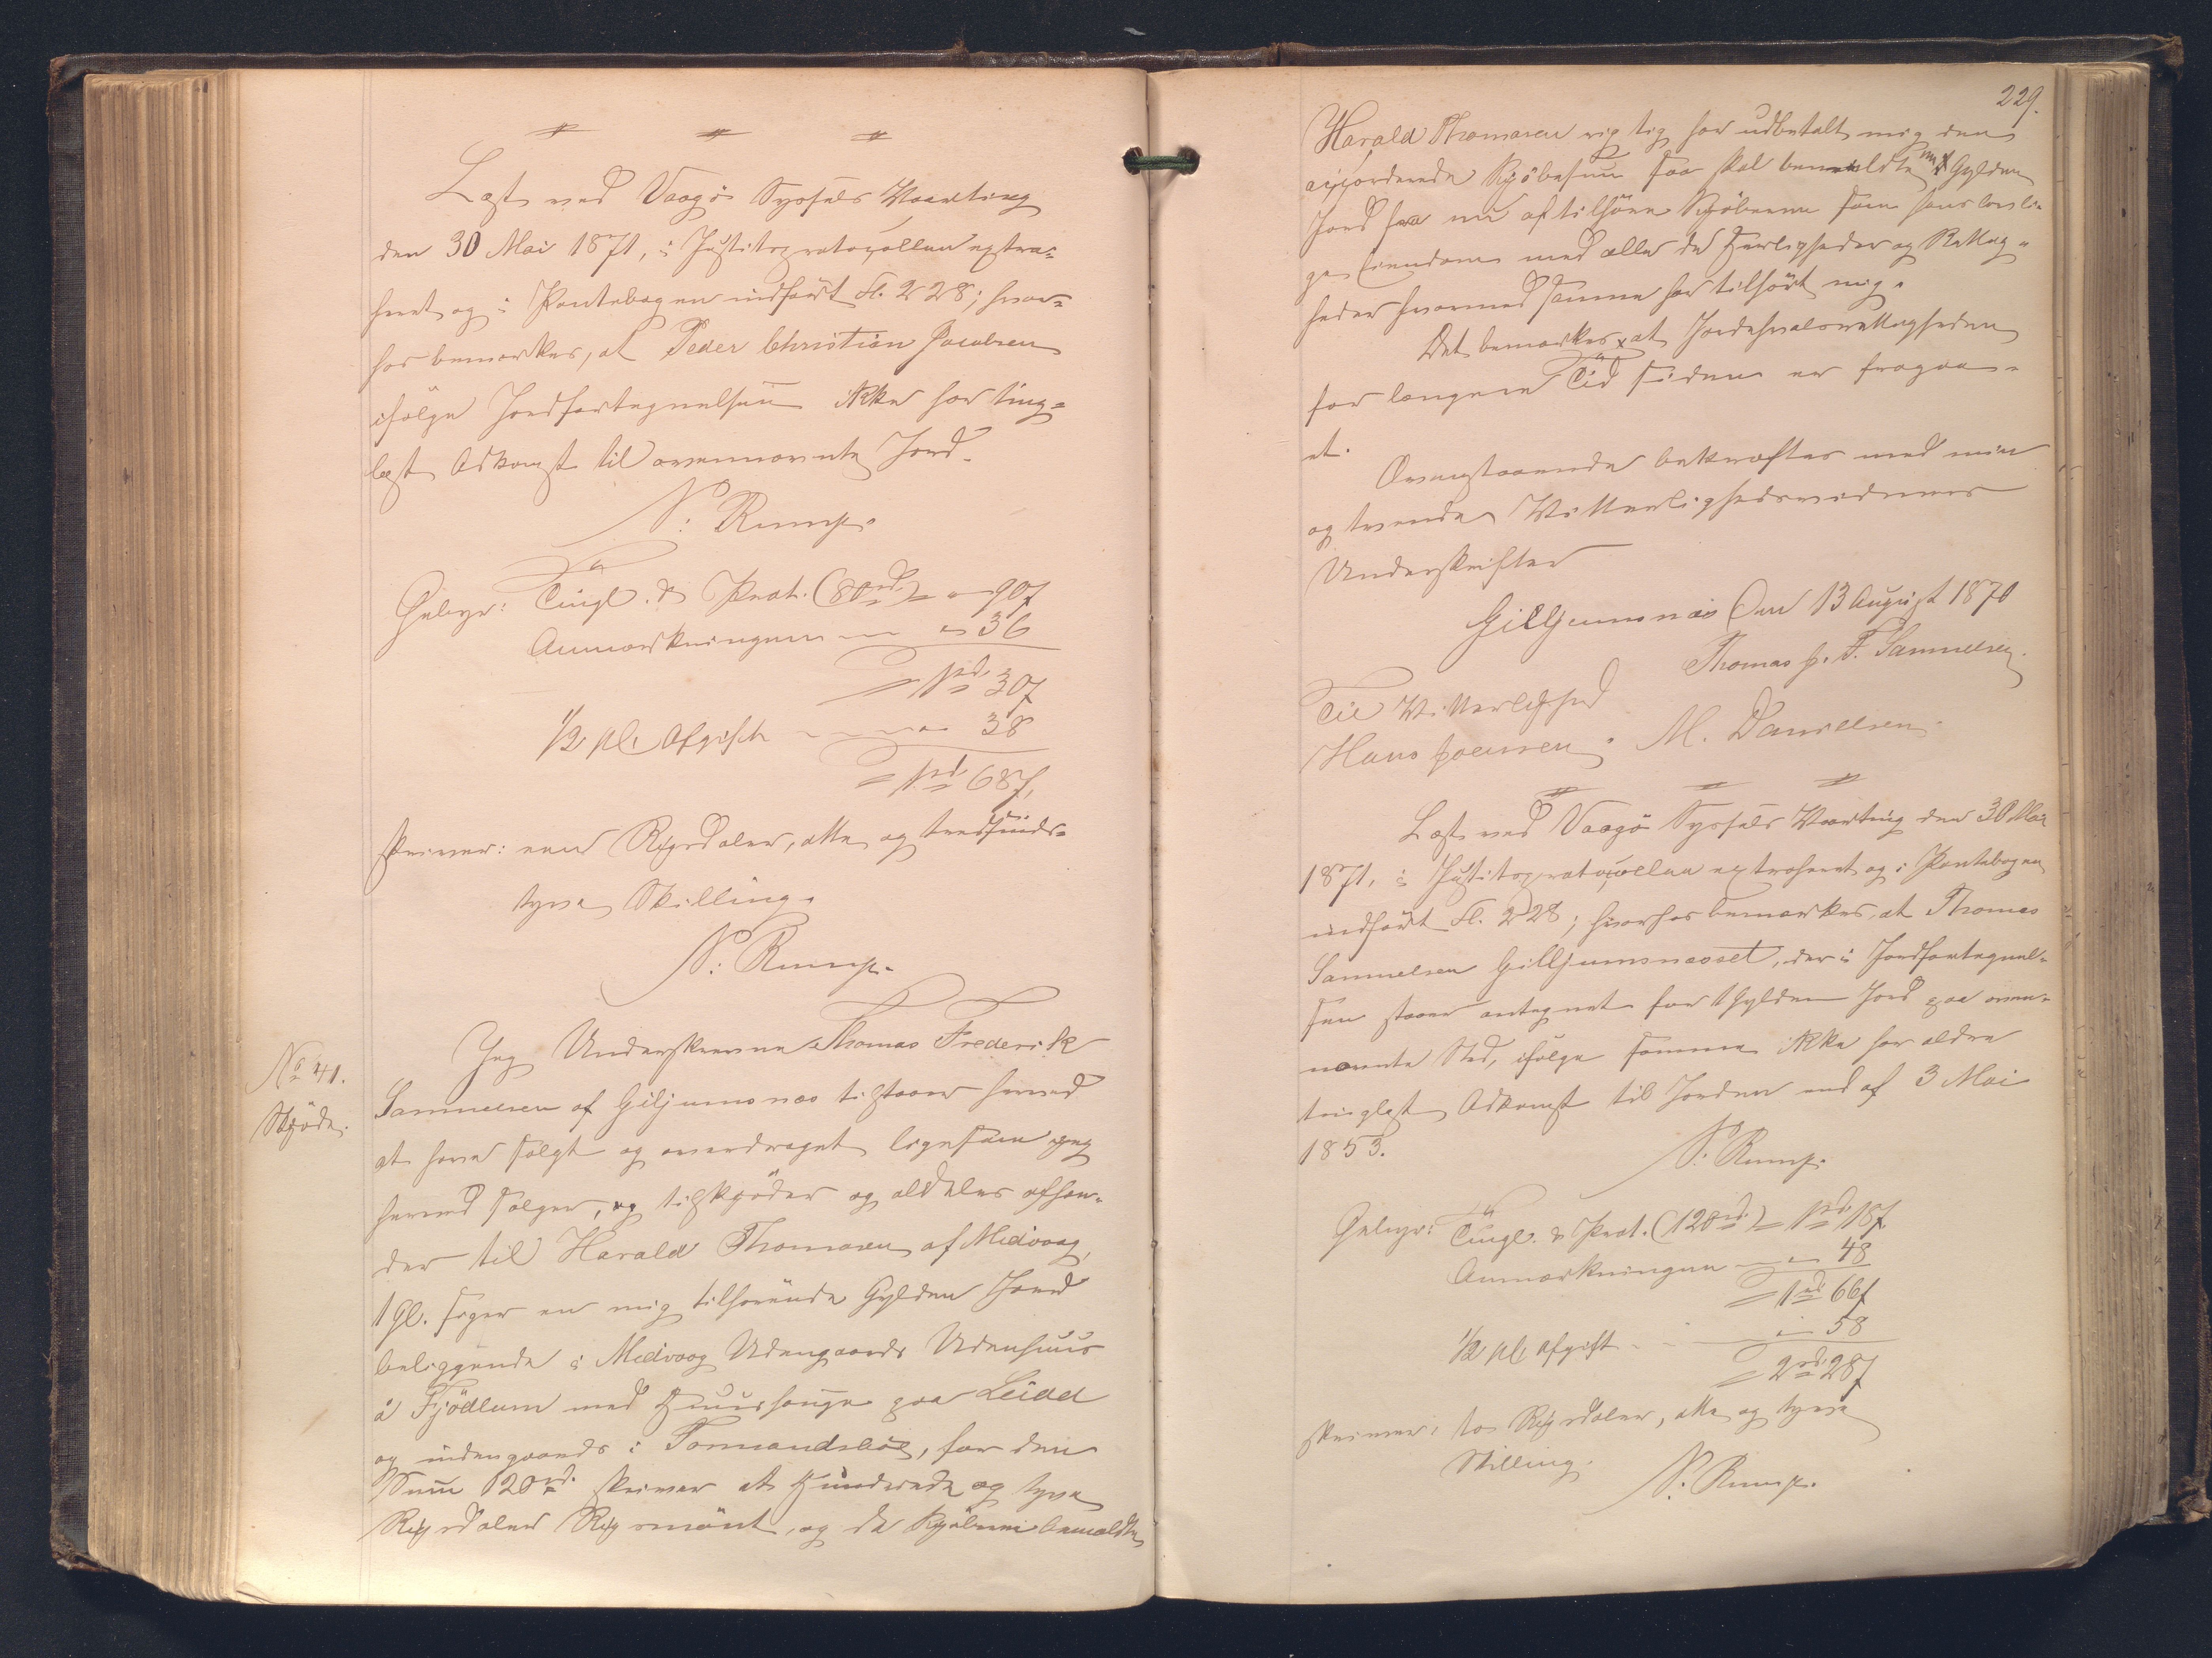 Læst ved Vaagø Syssels Vaarting
den 30 Mai 1871, i Justitsprotocollen extra-
heret og i Pantebogen indført Fl. 228; hvor-
hos bemærkes, at Peder Christian Jacobsen
ifølge Jordfortegnelsen ikke har ting-
læst Adkomst til ovennævnte Jord.
N: Rump.
Gebyr: Tingl. & Prot. (80 rd.) = " 90 ß
Anmærkningen " 36
= 1 rd. 30 ß
1/2 pCt Afgift 38
= 1 rd. 68 ß,
skriver: een Rigsdaler, otte og tredsinds-
tyve Skilling.
N: Rump.
No 41.
Skjøde.
Jeg Underskrevne Thomas Frederik
Samuelsen af Giljumsnæs tilstaaer herved
at have solgt og overdraget ligesom jeg
herved sælger, og tilskjøder og aldeles afhæn-
der til Harald Thomasen af Midvaag,
1 Gl. siger en mig tilhørende Gylden Jord
beliggende i Midvaag Udengaards Udenhuus
á Fjödlum med Huushauge paa Leidd
og indengaards i Tormandsbøe, for den
Sum 120 rd. skriver et Hundrede og tyve
Rigsdaler Rigsmønt, og da Kjøberen bemeldte
229.
Harald Thomasen rigtig har udbetalt mig den
accorderede Kjøbesum saa skal bemeldte Gylden
Jord fra nu af tilhøre Kjøberen som hans lovli-
ge Eiendom med alle de Herligheder og Rettig-
heder hvormed samme har tilhørt mig.
Det bemærkes at Jordehvalsrettigheden
for længere Tid siden er fragaa-
et.
Ovenstaaende bekræftes med min
og tvende Vitterlighedsvidners
Underskrifter
Gilljumsnæs Den 13 August 1870
Thomas F. Samuelsen.
Til Vitterlighed
Hans Joensen. M. Danielsen.
Læst ved Vaagø Syssels Vaarting den 30 Mai
1871, i Justitsprotocollen extraheret og i Pantebogen
indført Fl. 228; hvorhos bemærkes, at Thomas
Samuelsen Gilljumsnæsset, der i Jordfortegnel-
sen staaer antegnet for 1 Gylden Jord paa oven-
nævnte Sted, ifølge samme ikke har ældre
tinglæst Adkomst til Jorden end af 3 Mai
1853.
N: Rump.
Gebyr: Tingl. & Prot. (120 rd.) = 1 rd. 18 ß
Anmærkningen " 48
= 1 rd. 66 ß
1/2 pCt Afgift " 58
= 2 rd. 28 ß
skriver: to Rigsdaler, otte og tyve
Skilling.
N: Rump.